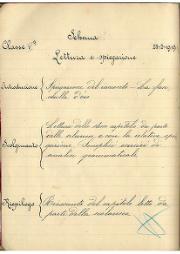 Schema
Classe Vª 28-2-1919
Lettura e spiegazione
Introduzione { Spiegazione del concreto - La fun
della
Svolgimento { Lettura dello stesso capitolo da parte
delle alunne, e con la relativa spie
gazione. Semplici esercizi di
analisi grammaticale.
Riepilogo { Riassunto del capitolo letto da
parte della scolaresca